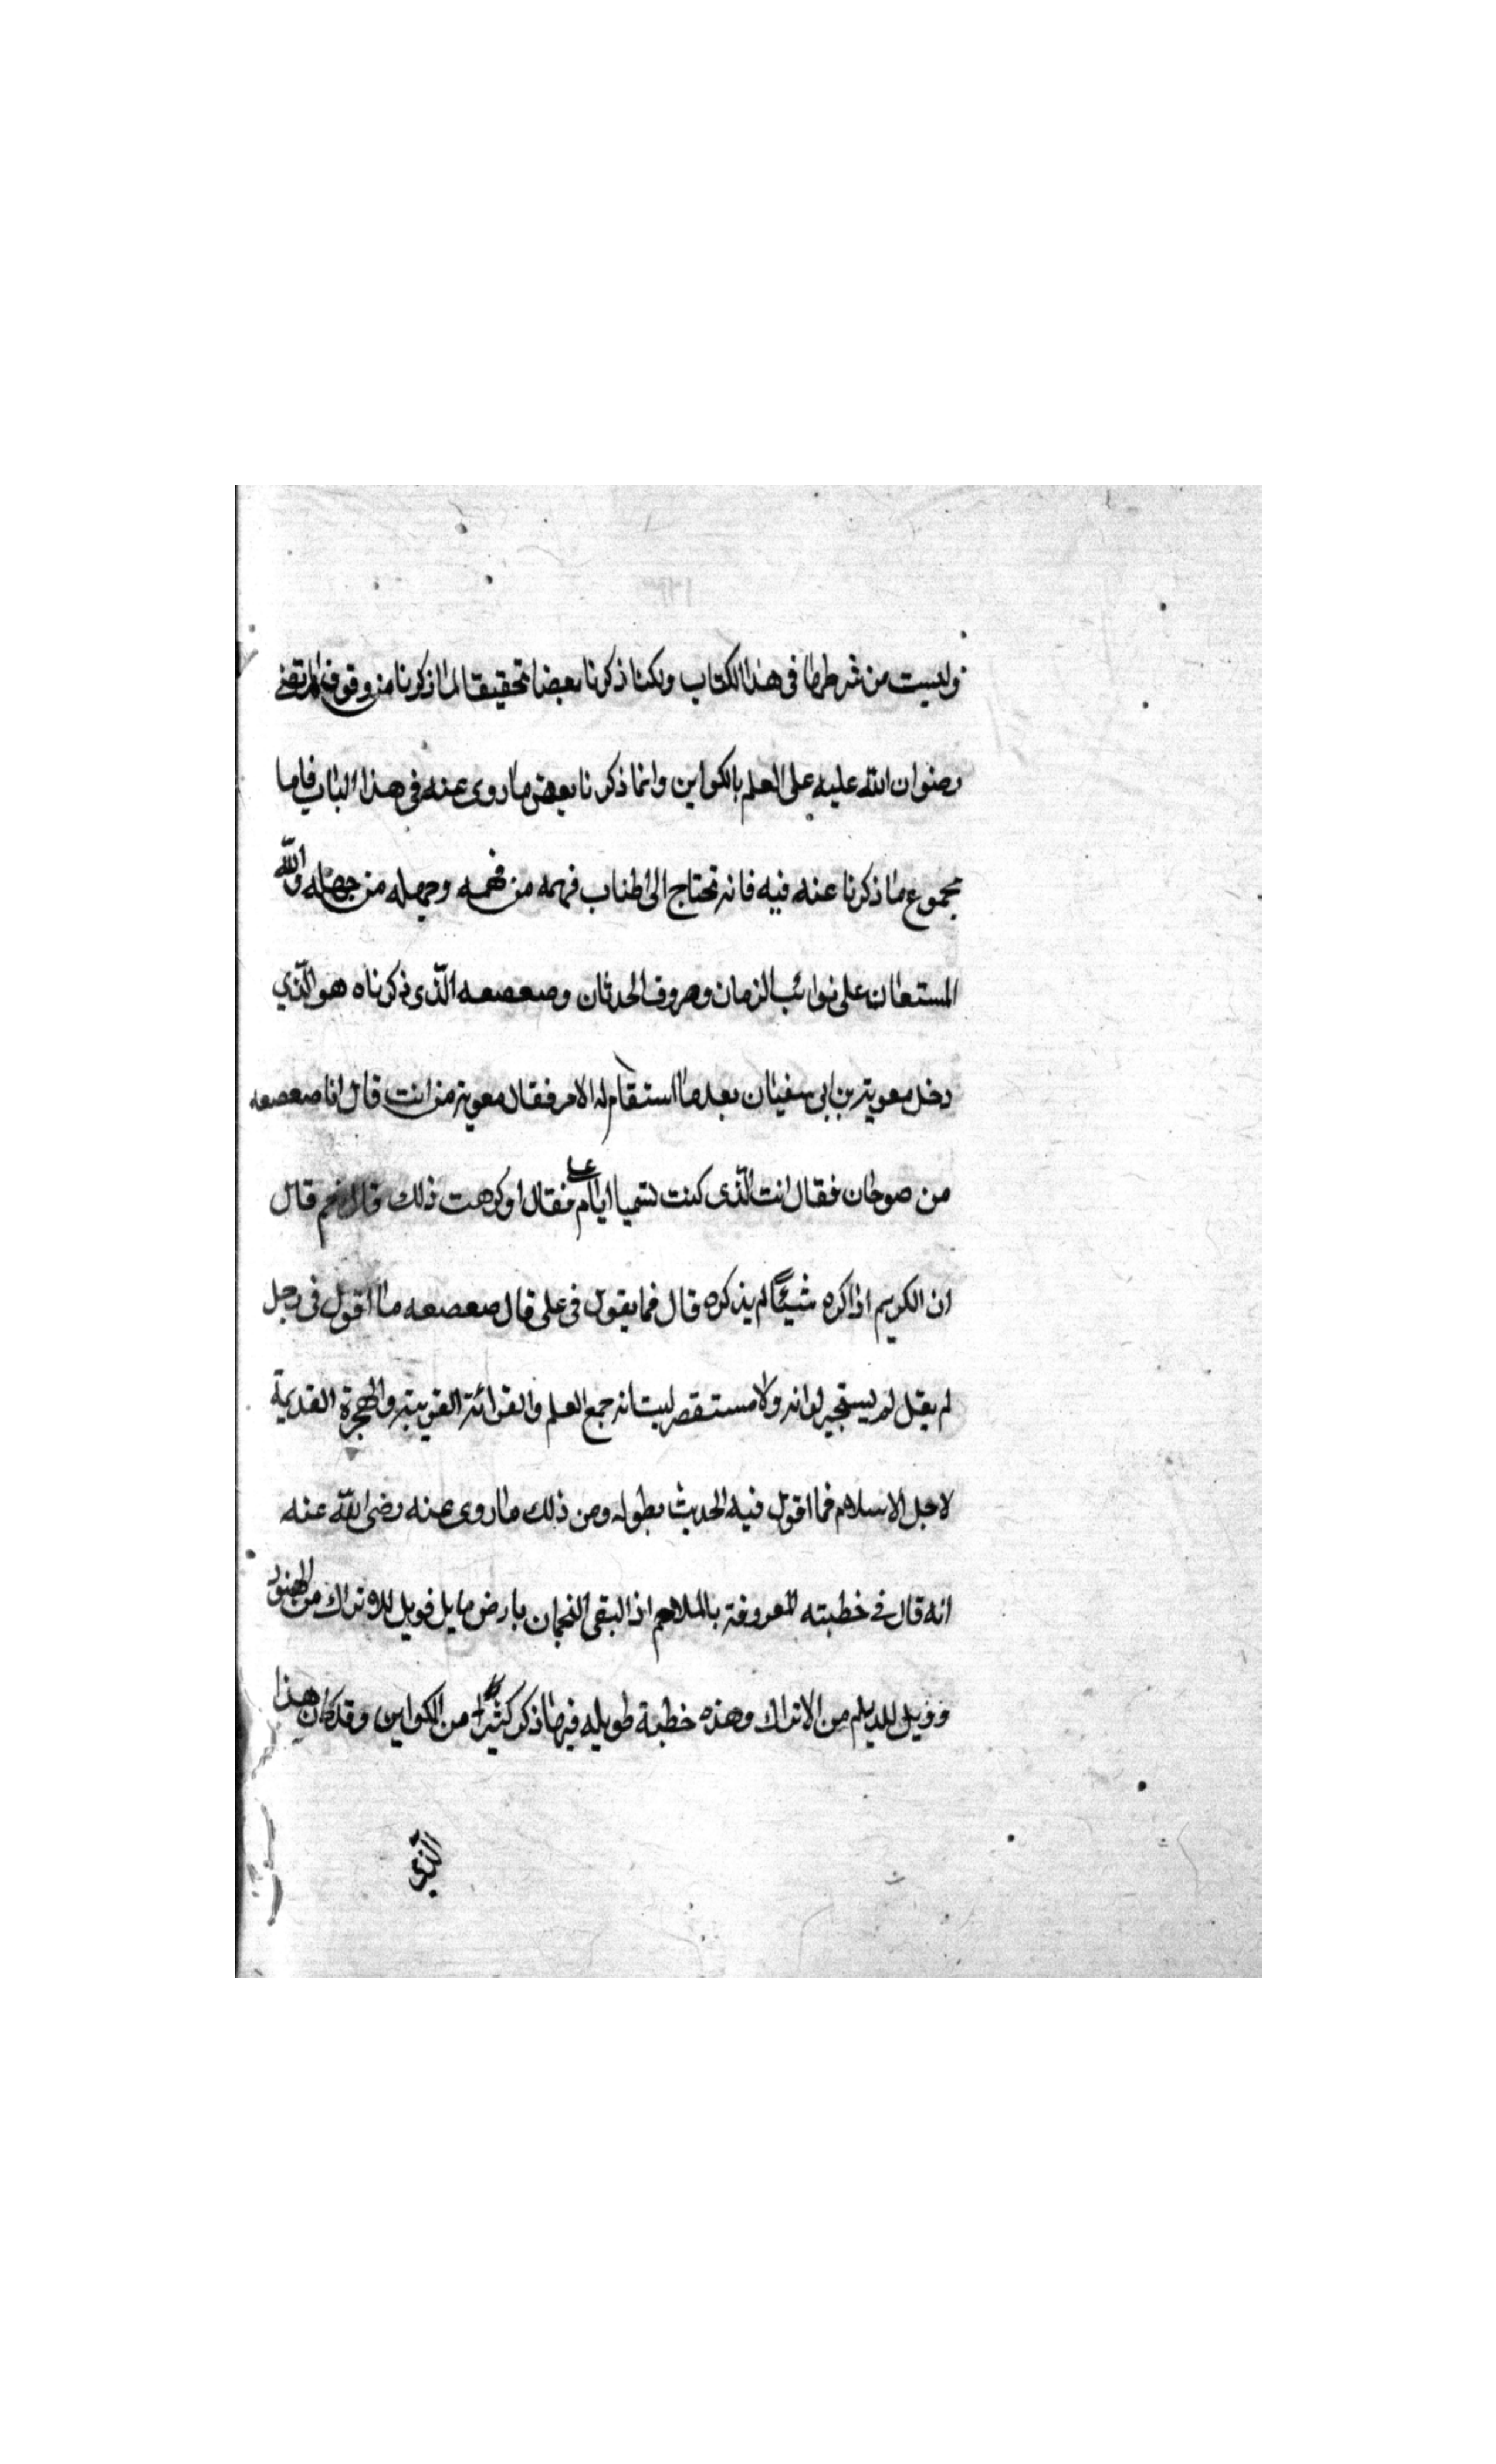 وليست من شرطها في هذا الكتاب ولكنا ذكرنا بعضا تحقيقا لما ذكرنا من وقوف المرتضى
رضوان الله عليه على العلم بالكواين وانما ذكرنا بعض ما روى عنه في هذا الباب فاما
مجموع ما ذكرنا عنه فيه فانه تحتاج الى اطناب فهمه من فهمه وجهله من جهله والله
المستعان على نوائب الزمان وصروف الحدثان وصعصعه الذى ذكرناه هو الذي
دخل معوية بن ابى سفيان بعد ما استقام له الامر فقال معوية من انت قال انا صعصعه
من صوحان فقال انت الذى كنت ايام على فقال اوكرهت ذلك قال نعم قال
ان الكريم اذا كره شيئا لم يذكره قال فما يقول في على قال صعصعه ما اقول في رجل
لم يقل ولا جمع العلم والقرائة القريبة والهجرة القديمة
لاجل الاسلام فما اقول فيه الحديث بطوله ومن ذلك ما روى عنه رضى الله عنه
انه قال في خطبته المعروفة بالملاحم اذا لتقى النجمان بارض بابل فويل للاتراك من الهنود
وويل للديلم من الاتراك وهذه خطبة طويله فيها ذكر كثيرا من الكواين وقد كان هذا
الذى